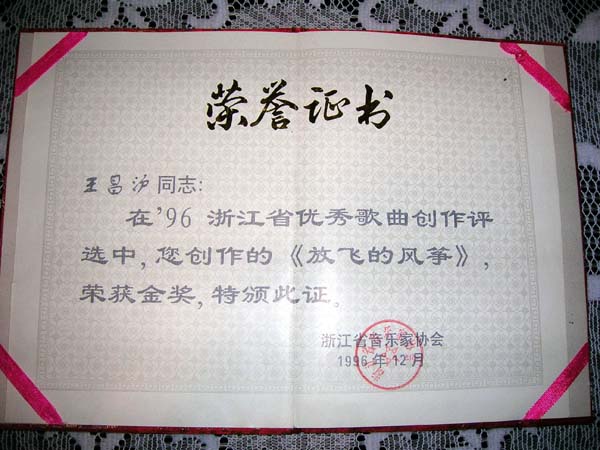 荣誉证书
王昌汐同志:
在'96 浙江省优秀歌曲创作评
选中,您创作的《放飞的风筝》,
荣获金奖,特颁此证。
浙江省音乐家协会
1996年12月